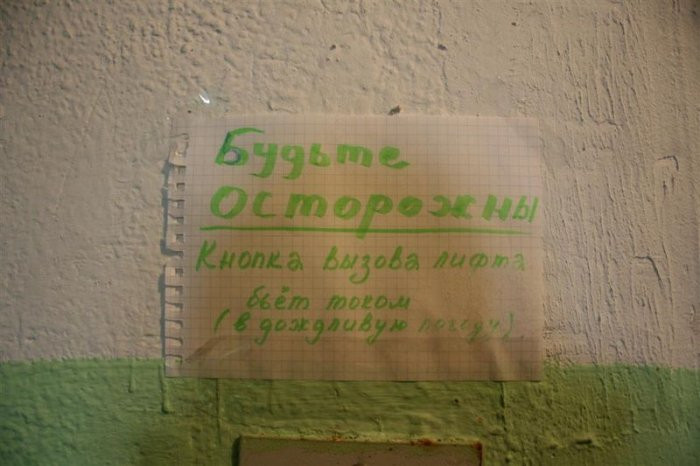 Будьте
осторожны
Кнопка вызова лифта
бьёт током
(в дождливую погоду)